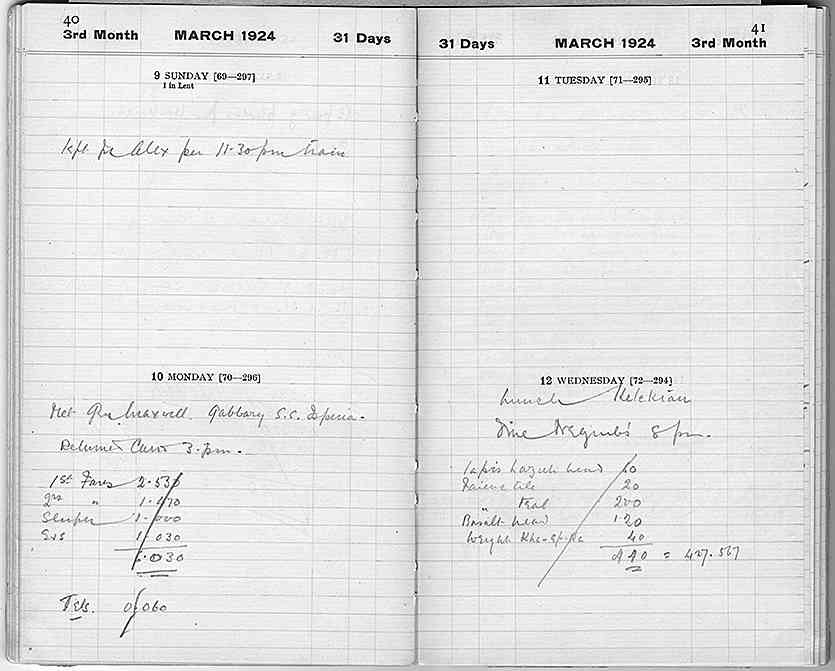 40
3rd Month MARCH 1924 31 Days
9 SUNDAY [69—297]
1 in Lent
left for Alex per 11·30 pm train
10 MONDAY [70—296]
Met Gen Maxwell. Gabbary S.S. Esperia.
Returned Cairo 3.pm.
1st Fares 2·530
2nd " 1·470
Sleeper 1·000
Exs 1·030
6·030
Tels. 0·060
41
31 Days MARCH 1924 3rd Month
11 TUESDAY [71—295]
12 WEDNESDAY [72—294]
Lunch Kelekian
Dine 8 pm.
Lapis lazuli head 60
Faience tile 20
" 200
Basalt head 120
Weight Kha-ef-Ra 40
440 = 427.567